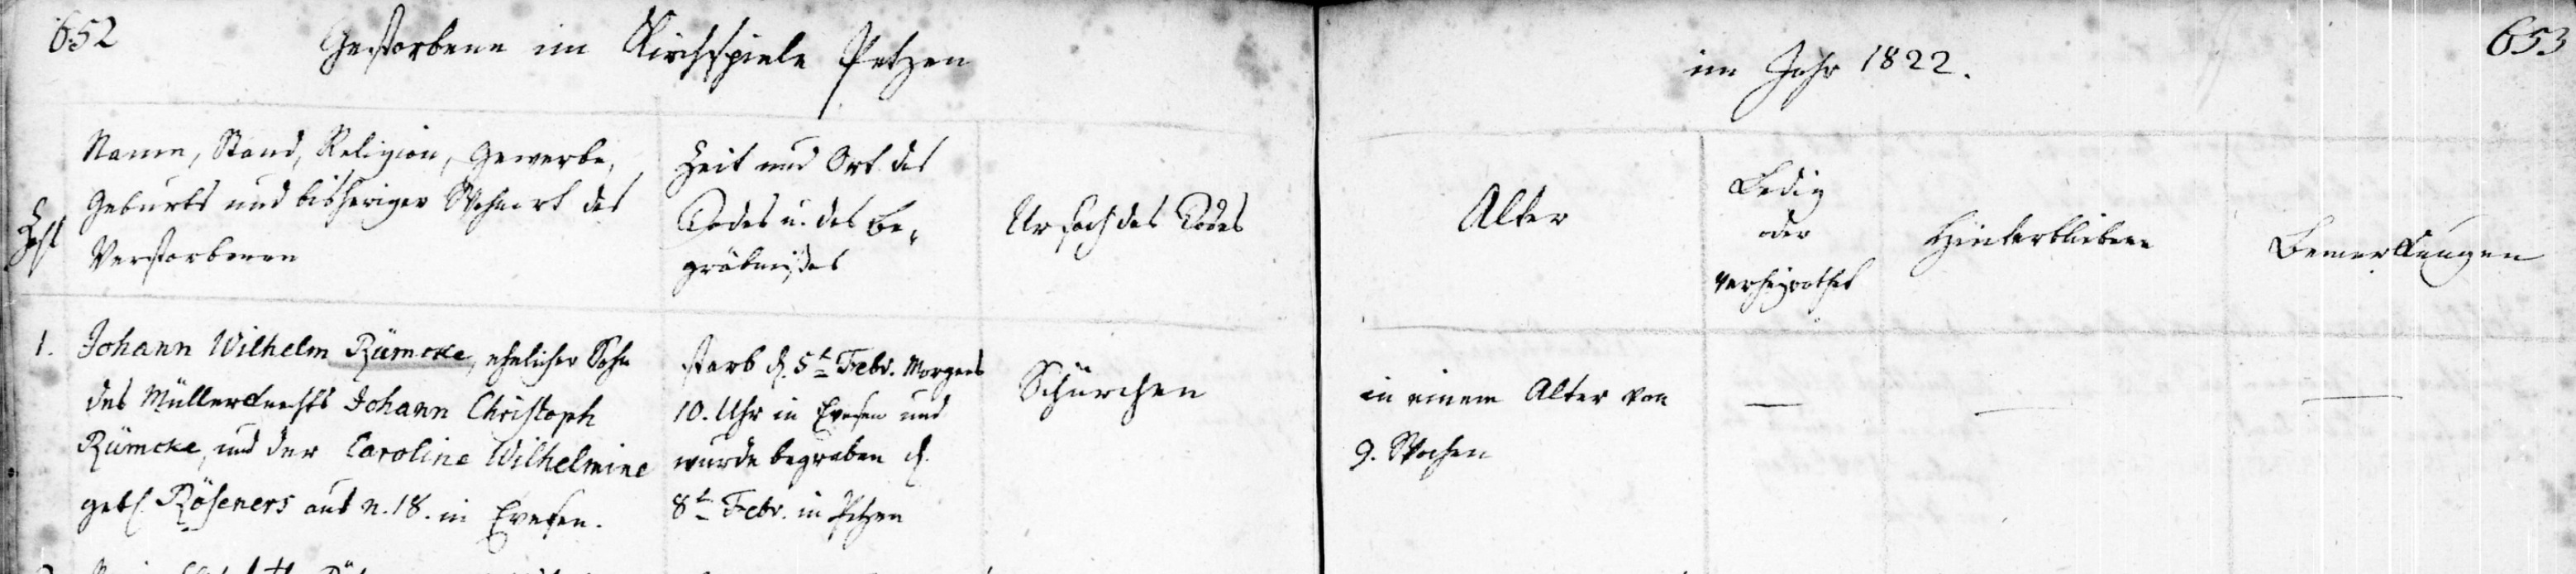 652
Gestorbene im Kirchspiele Petzen
im Jahr 1822.
653
Zahl
Namen, Stand, Religion, Gewerbe,
Geburts und bisheriger Wohnort des
Verstorbenen
Zeit und Ort des
Todes u. des Be-
gräbnißes
Ursach des Todes
Alter
Ledig
oder
verheyrathet
Hinterbliebene
Bemerkungen
1.
Johann Wilhelm Rümcke, ehelicher Sohn
des Müllerknechts Johann Christoph
Rümcke, und der Caroline Wilhelmine
geb. Röseners aus N. 18. in Evesen.
starb d. 5t Febr. Morgens
10. Uhr in Evesen und
wurde begraben d.
8t Febr. in Petzen
Schürchen
in einem Alter von
9. Wochen
—
—
—